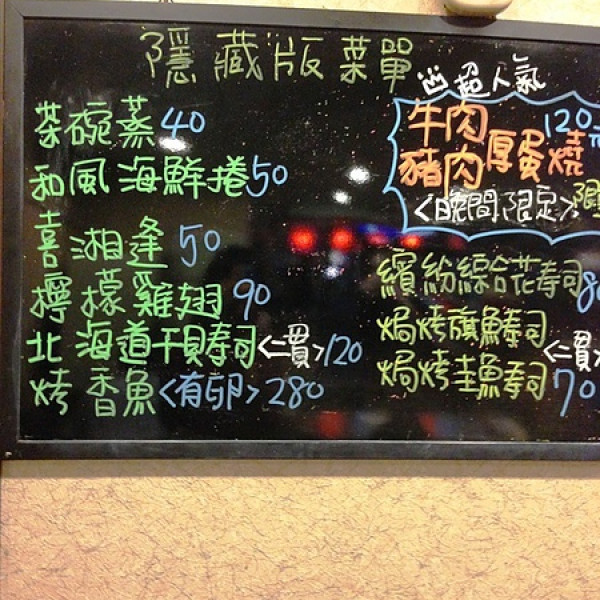 隱藏版菜單
茶碗蒸 40
和風海鮮捲 50
喜湘逢 50
檸檬雞翅 90
北海道干貝壽司<一貫>120
烤香魚<有卵>280
超人氣
牛肉
豬肉
厚蛋燒
120元
<晚間限定>
繽紛綜合花壽司 80
焗烤旗魚壽司
焗烤鮭魚壽司
<一貫>
70